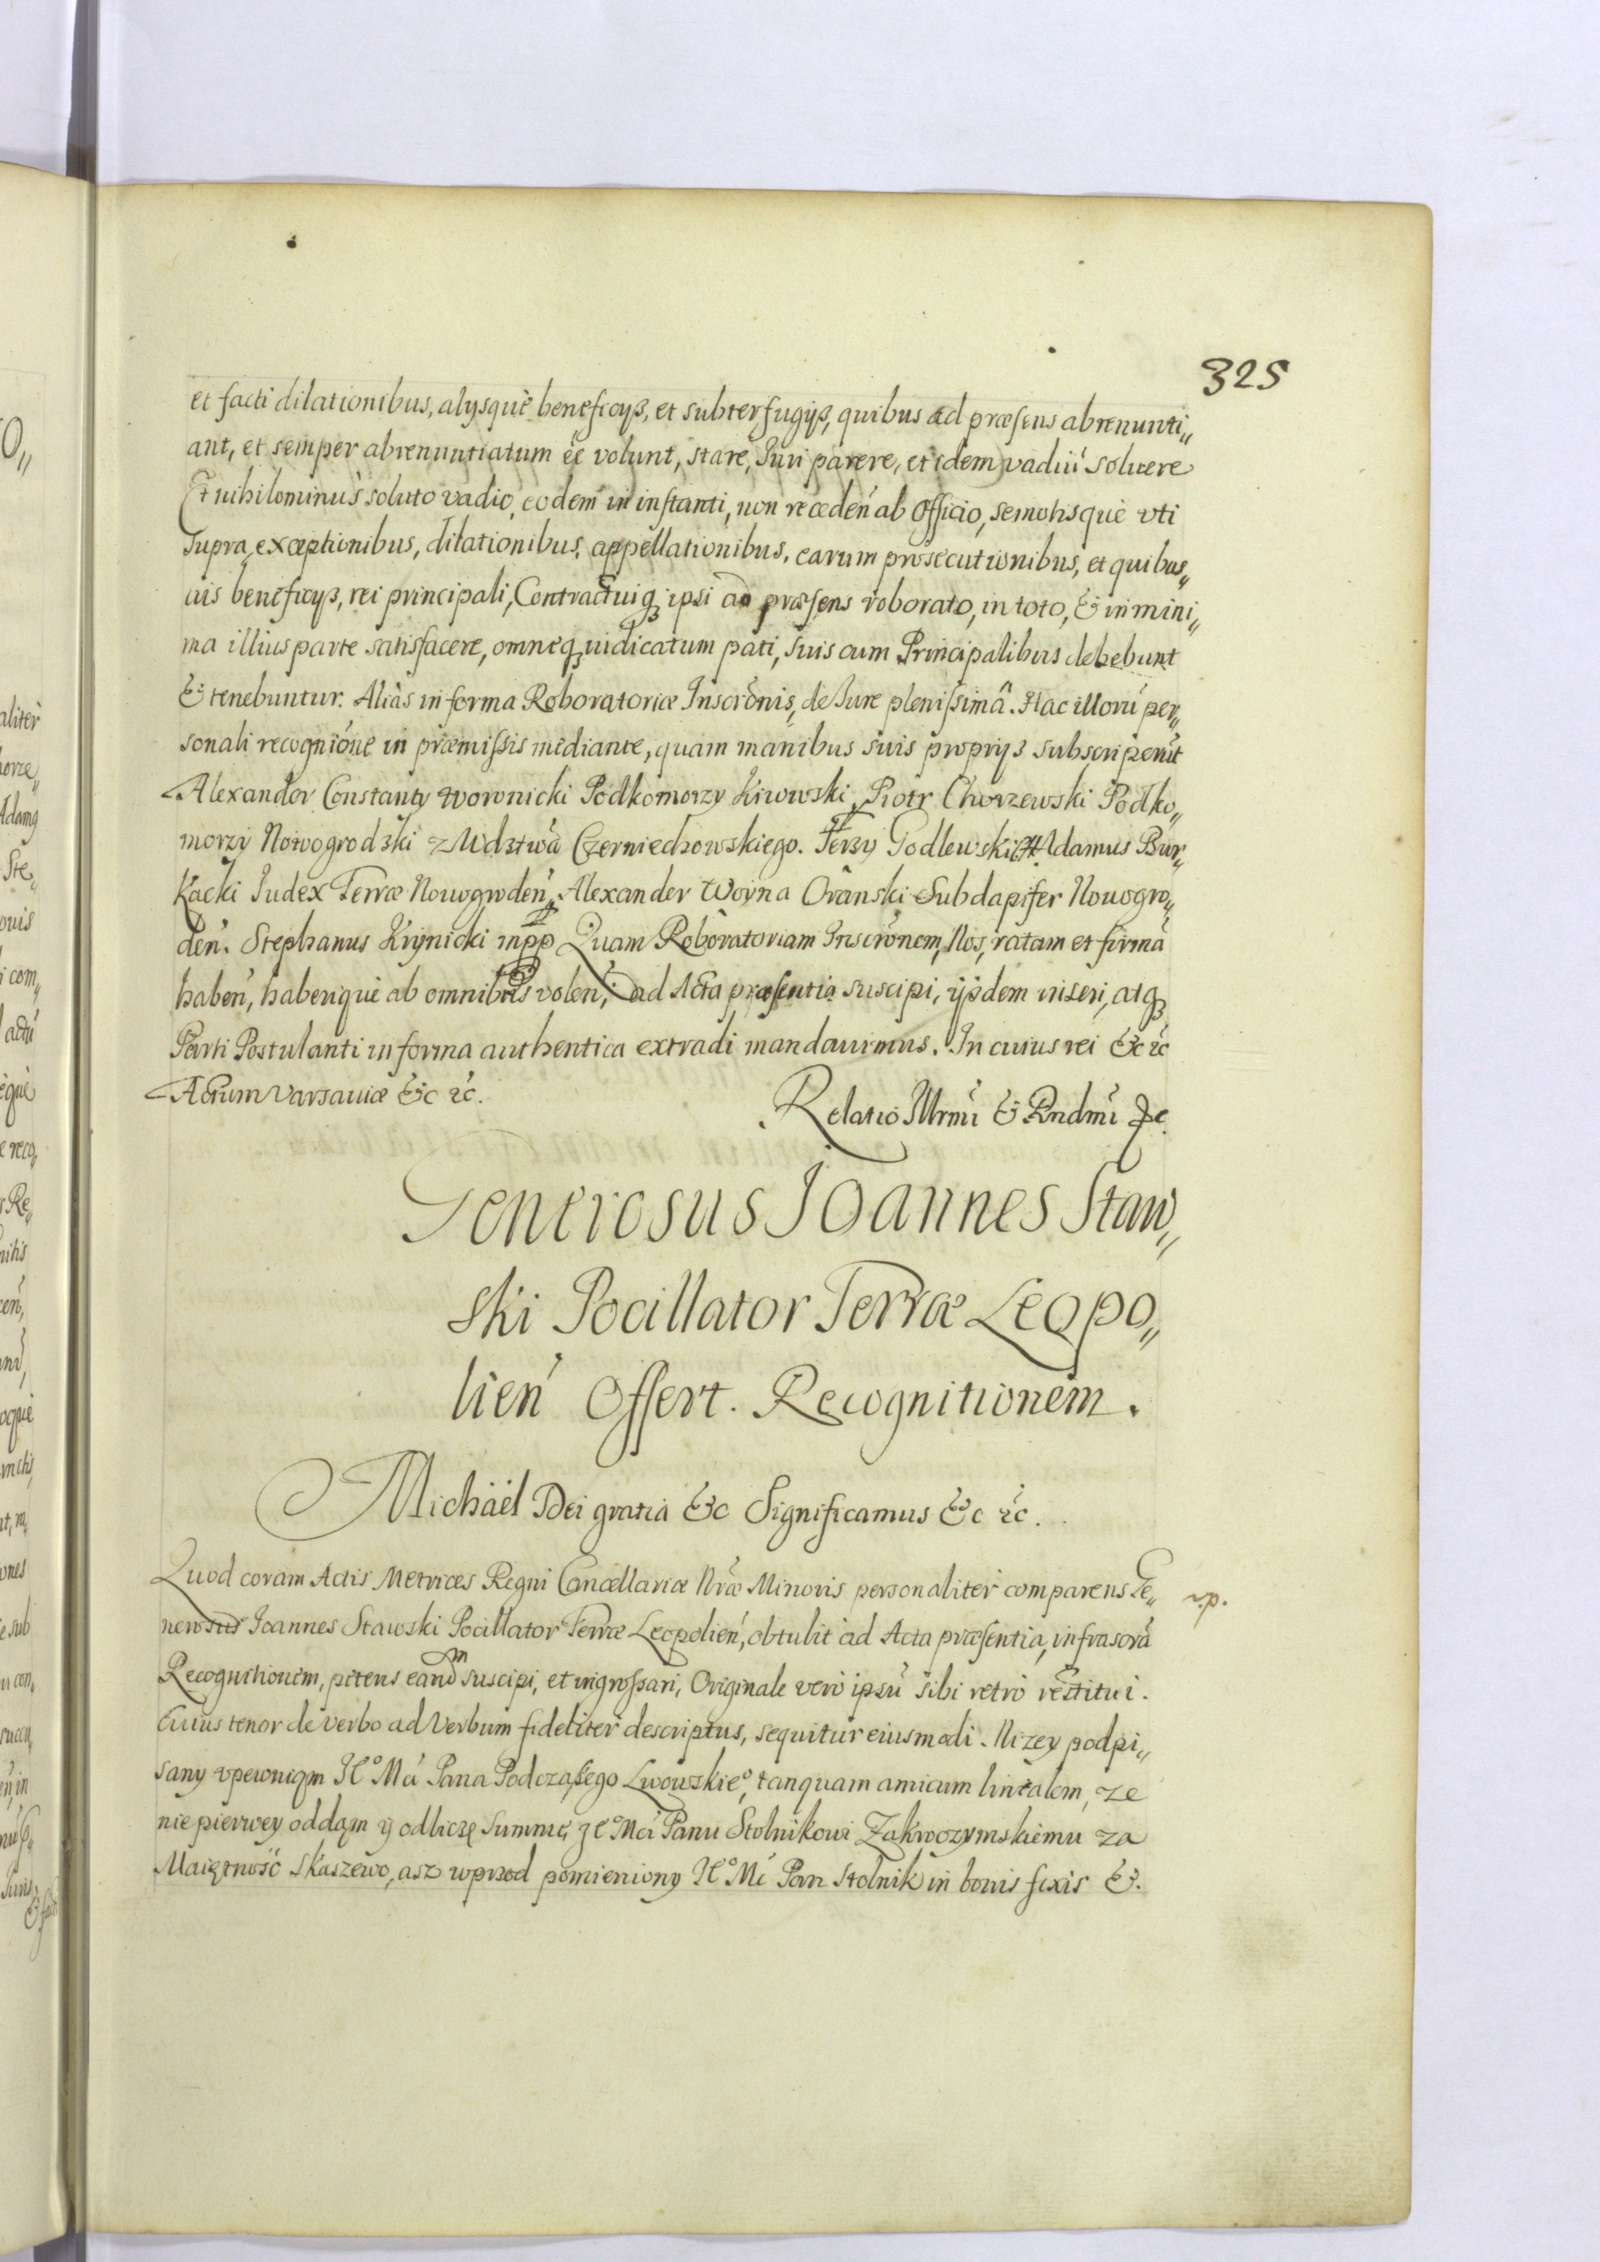 325
et facti dilationibus, alysquè beneficys, et subterfugys, quibus ad præsens abrenunti„
ant, et semper abrenuntiatum ee volunt, stare, Juri parere, et idem vadiū soluere
Et nihilominus soluto vadio, eodem in instanti, non receden̄ ab Officio, semotisquè vti
supra, exceptionibus, dilationibus, appellationibus, earum prosecutionibus, et quibus„
uis beneficys, rei principali, Contractuiq; ipsi ad præsens roborato, in toto, & in mini„
ma illius parte satisfacere, omneq; iudicatum pati, suis cum Principalibus debebunt
& tenebuntur. Aliàs in forma Roboratoriæ Inscrōnis, de Jure plenissimâ. Hac illorū per„
sonali recogniōne in præmissis mediante, quam manibus suis proprys subscripserūt
Alexander Constanty Woronicki Podkomorzy Kiiowski, Piotr Chorzewski Podko„
morzy Nowogrodzki z Wdztwa Czerniechowskiego. Jerzy Godlewski Adamus Bur„
kacki Judex Terræ Nouogroden̄. Alexander Woyna Oranski Subdapifer Nouogro„
den̄. Stephanus Krynicki mpp Quam Roboratoriam Inscrōnem, Nos, ratam et firmā
haben̄, haberiquè ab omnibus volen̄, ad Acta præsentia suscipi, ysdem inseri, atq;
Parti Postulanti in forma authentica extradi mandauimus. In cuius rei &c &c
Actum Varsauiæ &c &c.
Relatio Illrmi & Rndmi &c.
Generosus Joannes Staw„
ski Pocillator Terræ Leopo„
lien̄ Offert Recognitionem.
Michaël Dei gratia &c Significamus &c &c.
Quod coram Actis Metrices Regni Cancellariæ Nræ Minoris personaliter comparens Ge„
r.p.
nerosus Joannes Stawski Pocillator Terræ Leopolien̄, obtulit ad Acta præsentia, infrascrā
Recognitionem, petens eandm suscipi, et ingrossari, Originale verò ipsū sibi retrò restitui.
Cuius tenor de verbo ad Verbum fideliter descriptus, sequitur eiusmodi. Nizey podpi„
sany vpewniąm Je° Mći Pana Podczaszego Lwowskie°, tanquam amicum linealem, ze
nie pierwey oddąm y odliczę summę Je° Mći Panu Stolnikowi Zakroczymskiemu za
Maiętność Skaszewo, asz wprzod pomieniony Je° Mć Pan Stolnik in bonis fixis &.